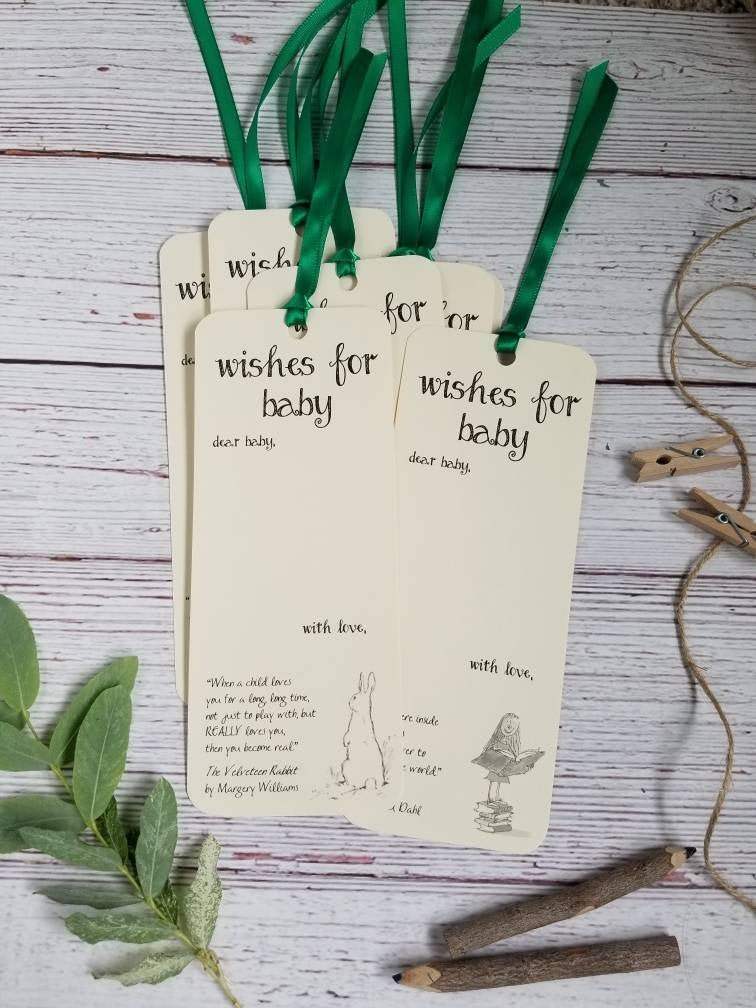 wi
wish
for
for
de
wishes for
baby
dear baby,
with love,
"When a child loves
you for a long, long time,
not just to play with, but
REALLY loves you,
then you become real"
The Velveteen Rabbit
by Margery Williams
wishes for
baby
dear baby,
with love,
ere inside
er to
world"
Dahl